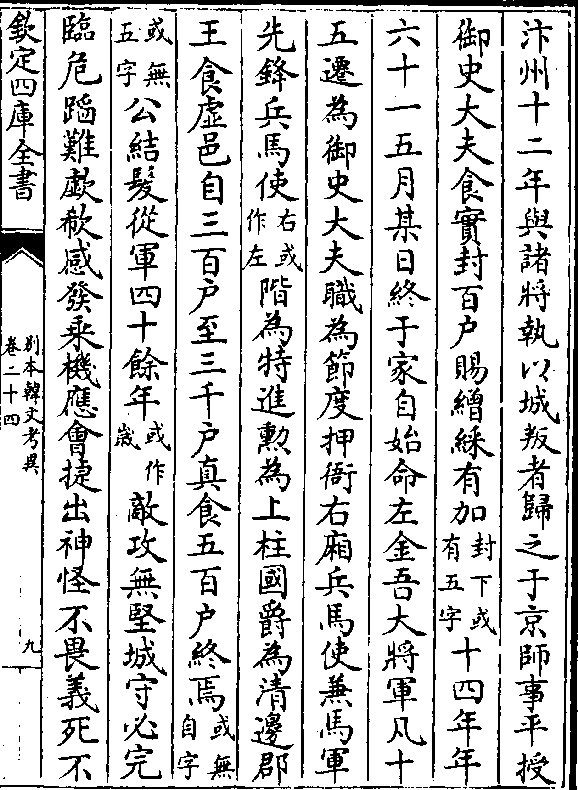 汴州十二年與諸將執以城叛者歸之于京師事平授
御史大夫食實封百户賜繒綵有加封下或有五字十四年年
六十一五月某日終于家自始命左金吾大將軍凡十
五遷為御史大夫職為節度押衙右廂兵馬使兼馬軍
先鋒兵馬使右或作左階為特進勲為上柱國爵為清邊郡
王食虚邑自三百户至三千户真食五百户終焉或無自字
或無五字公結髮從軍四十餘年或作歳敵攻無堅城守必完
臨危蹈難歔欷感發乘機應會捷出神怪不畏義死不
欽定四庫全書
别本韓文考異
卷二十四
九